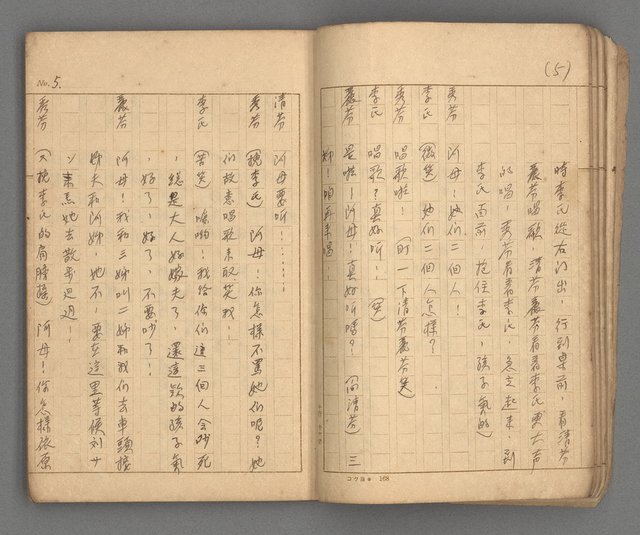 (5)
時李氏從右門出，行到桌前，看清芬
麗芬唱歌，清芬麗芬看着李氏更大声
的唱，秀芬看着李氏，急立起來，到
李氏面前，抱住李氏，孩子氣的
秀芬　阿母！她们二個人！
李氏　(微笑) 她们二個人怎樣？
秀芬　唱歌啦！(盯一下清芬麗芬笑)
李氏　唱歌？真好听！(笑)
麗芬　是啦！阿母！真好听嗎？(向清芬)三
姉！咱再來唱！
コクヨ 168
No. 5.
清芬　阿母要听！……
秀芬　(挽李氏)阿母！你怎樣不罵她们呢？她
们故意唱歌來取笑我！
李氏　(苦笑)唉喲！我给你们這三個人会吵死
，緫是大人好嫁夫了，還這款的孩子氣
，好了，好了，不要吵了！
麗芬　阿母！我和三姊叫二姊和我们去車頭接
姊夫和阿姊，她不，要在這里等候刘少
ソ來焉她去散步迌迌，
秀芬　(又挽李氏的肩膀搖)阿母！你怎樣依原